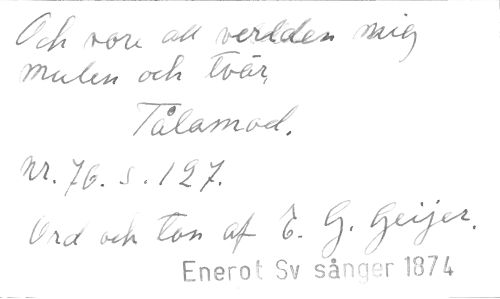 Och vore all verlden mig
mulen och tvär,
Tålamod.
Nr. 76. s. 127.
Ord och ton af E. G. Geijer.
Enerot Sv sånger 1874